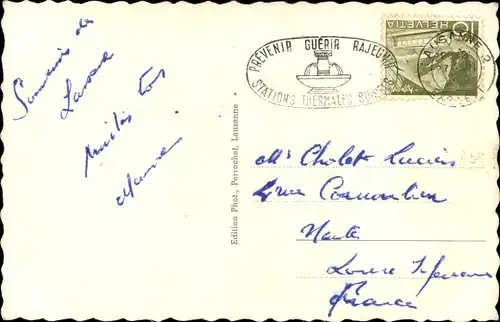 Souvenir de
Lausanne
Amitiés
Edition Phot., Perrochet, Lausanne
PRÉVENIR GUÉRIR RAJEUNIR
STATIONS THERMALES SUISSES
HELVETIA
10
LAUSANNE 2
Mr Cholet Lucien
Rue
Nantes
Loire Inférieure
France